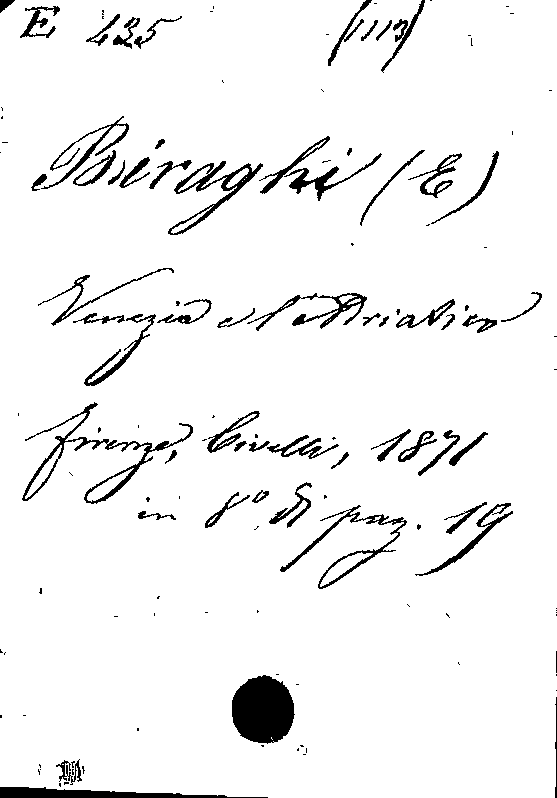 E 435 (1113)
Biraghi (E)
Venezia e l'Adriatico
Firenze, Civelli, 1871
in 8° di pag. 19